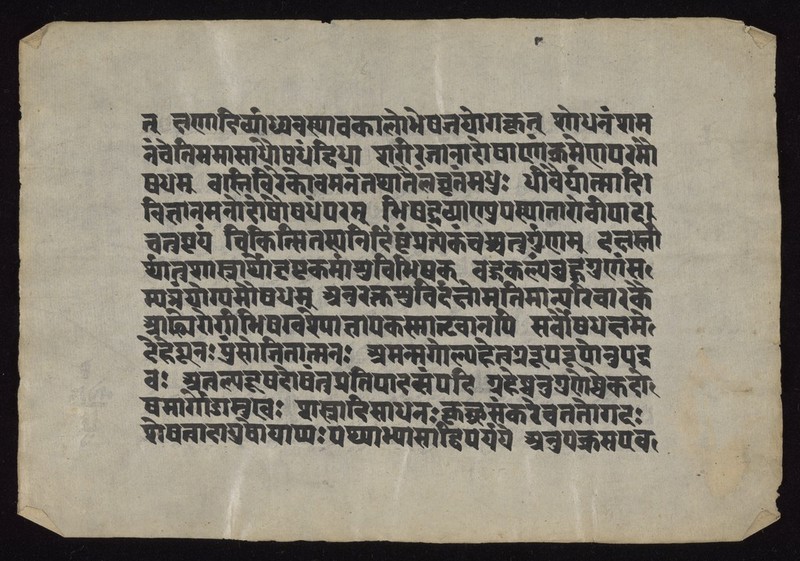 त् क्षणादिर्व्याध्यवस्थावकालोभेषजयोगकृत् शोधनंशम
नंचेतिसमासादौषधंद्विधा शरीरजानांदोषाणांक्रमेणपरमौ
षधम् वास्तिर्विरेकोवमनंतथातैलंघृतंमधुः धीधैर्यात्मादि
विज्ञानमनोदोषोषधंपरम् भिषग्द्रव्याण्युपस्थातारोगीपाद
चतुष्टयं चिकित्सितस्यनिर्दिष्टंप्रत्येकंतच्चतुर्गुणम् दक्षस्ती
र्थात्तशास्त्रार्थोदृष्टकर्माशुचिभिषक् बहुकल्पंबहुगुणंसं
म्पन्नंयोग्यमौषधम् अनुरक्तशुचिदक्षोमतिमान्परिचारकै
आढ्योरोगीभिषग्वश्योज्ञापकसात्त्ववानपि सर्वौषधक्षमे
देहेयूनःपुंसोजितात्मनः अमर्मगोल्पहेतग्ररूपरूपोनुपद्र
वः अतुल्यदूषदेशर्तुप्रतिपादसंपदि ग्रहेष्वनुगुणेष्वेकदो
षमार्गोनवःसुखः शस्त्रादिसाधनःकृच्छ्रसंकरेचततोगदः
शेषत्वादायुषोयाप्यःपथ्याभ्यासाद्विपर्यये अनुपक्रमएव